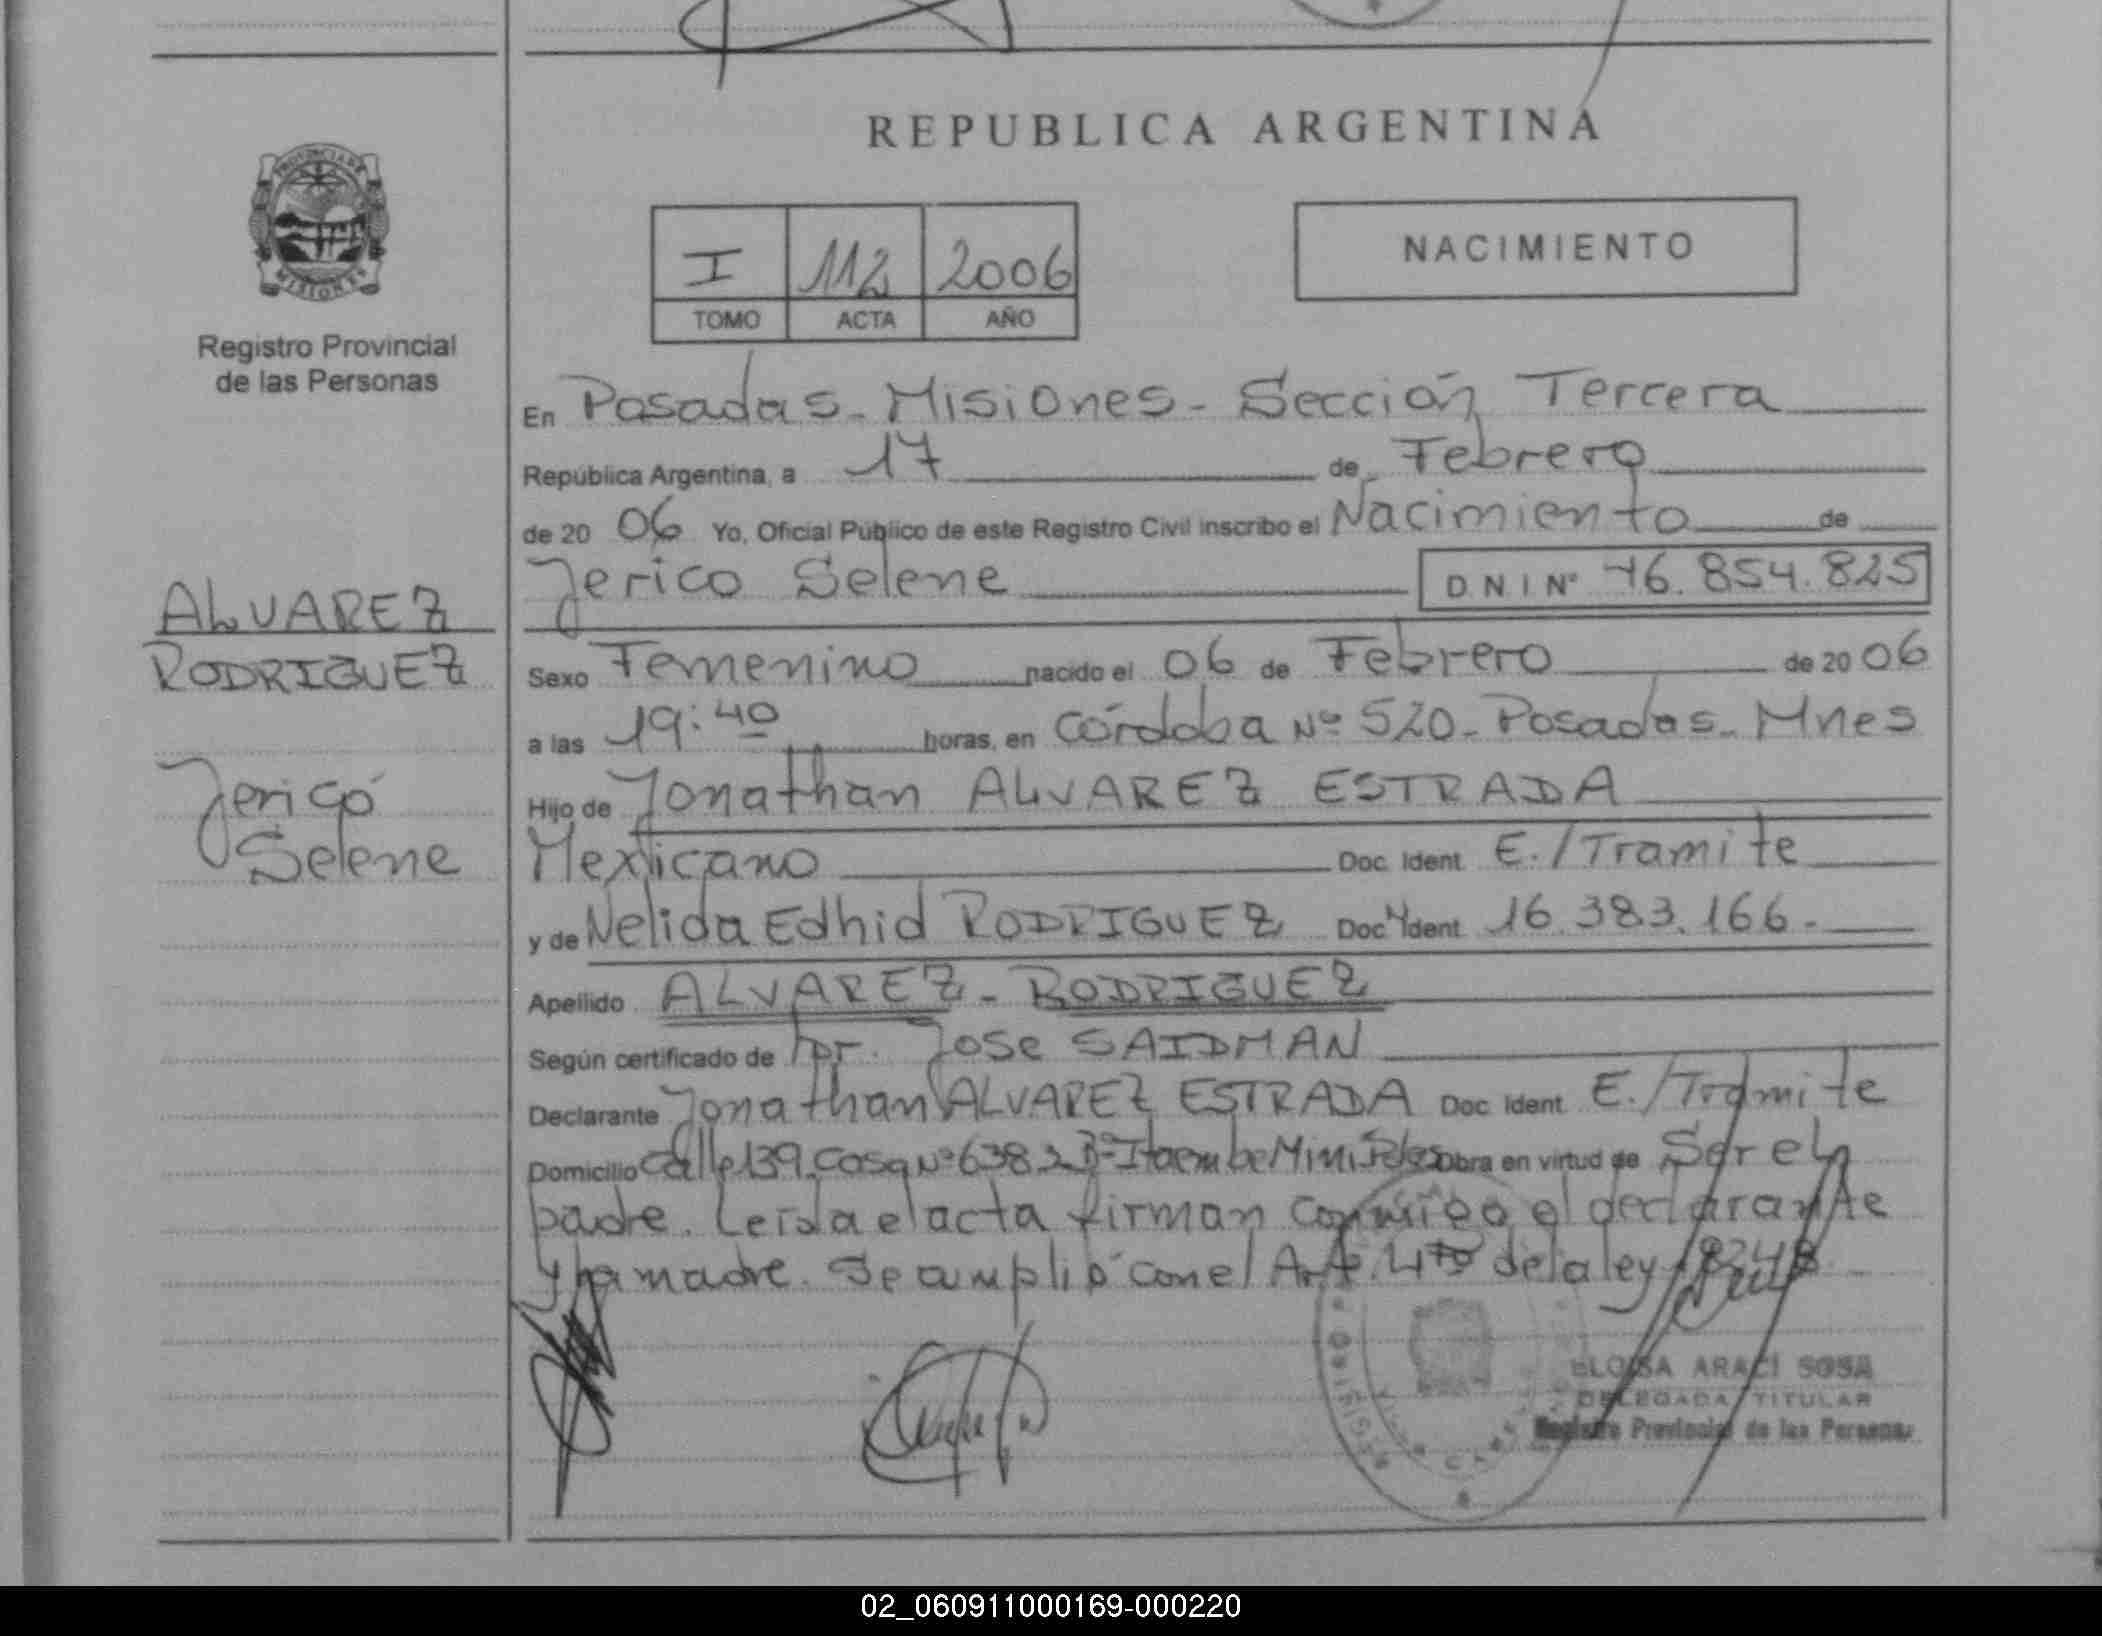 REPUBLICA ARGENTINA
PROVINCIA DE
MISIONES
Registro Provincial
de las Personas
I 112 2006
TOMO ACTA AÑO
NACIMIENTO
ALVAREZ
RODRIGUEZ
Jericó
Selene
En Posadas - Misiones - Sección Tercera
República Argentina, a 17 de Febrero
de 20 06 Yo, Oficial Público de este Registro Civil inscribo el Nacimiento de
Jerico Selene D.N.I Nº 46.854.825
Sexo Femenino nacido el 06 de Febrero de 20 06
a las 19:40 horas, en Córdoba Nº 520 - Posadas - Mnes
Hijo de Jonathan ALVAREZ ESTRADA
Mexicano Doc. Ident. E./Tramite
y de Nelida Edhid RODRIGUEZ Doc. Ident. 16.383.166.-
Apellido ALVAREZ - RODRIGUEZ
Según certificado de Dr. Jose SAIDMAN
Declarante Jonathan ALVAREZ ESTRADA Doc. Ident. E./Tramite
Domicilio Calle 139 Casa Nº 6382 Bº Itaembe Mini Obra en virtud de Ser el
padre. Leida el acta firman conmigo el declarante
y la madre. Se amplió con el Art. 4to de la ley 18248
ELOISA ARACÍ SOSA
DELEGADA TITULAR
Registro Provincial de las Personas
02_060911000169-000220